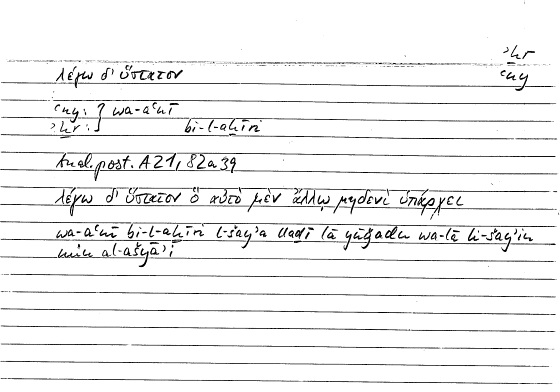 ʾḫr
λέγω δ' ὕστατον
ʿny
ʿny: } wa-aʿnī
ʾḫr: bi-l-aḫīri
Anal. post. A 21, 82a39
λέγω δ' ὕστατον ὃ αὐτὸ μὲν ἄλλῳ μηδενὶ ὑπάρχει
wa-aʿnī bi-l-aḫīri l-šayʾa llaḏī lā yūǧadu wa-lā li-šayʾin
min al-ašyāʾi